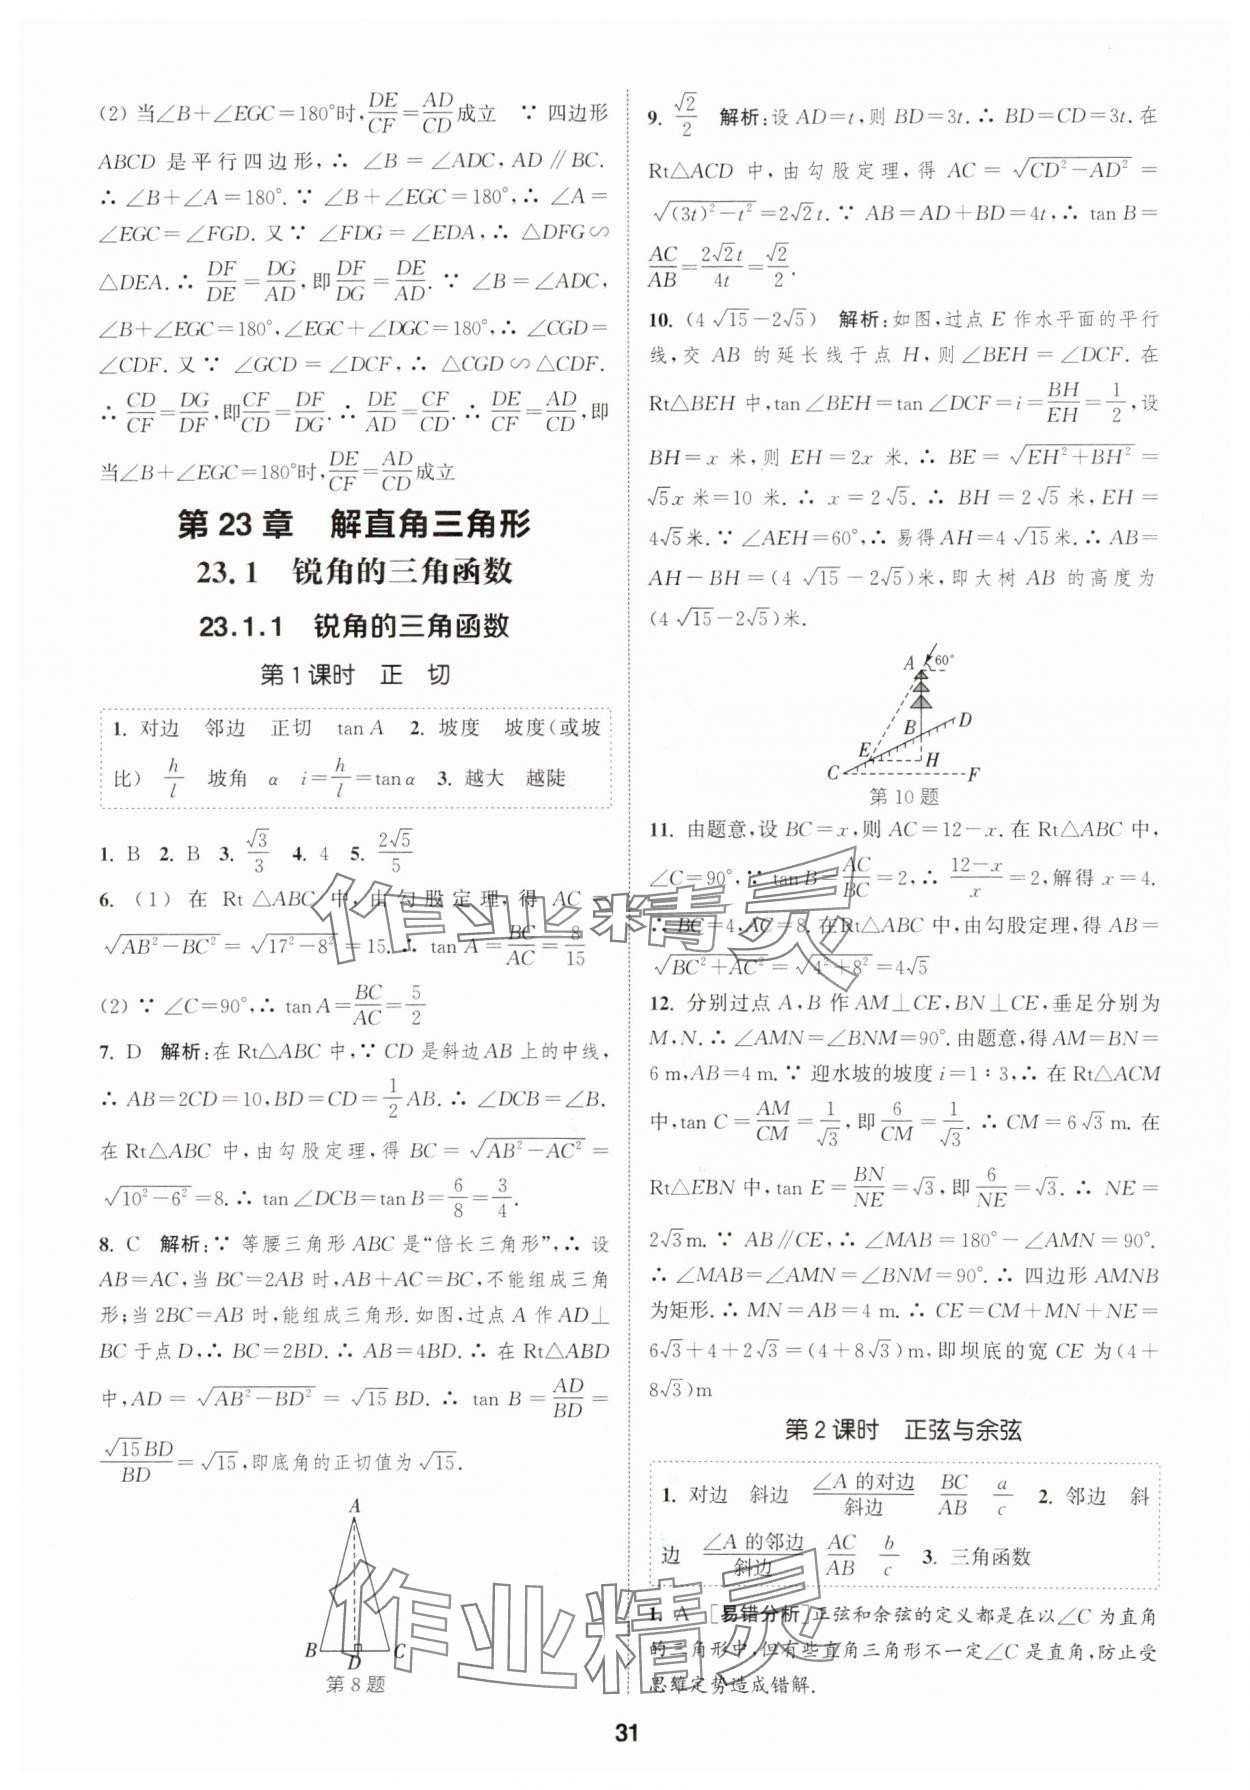 (2) 当∠B+∠EGC=180°时,DE/CF=AD/CD成立 ∵ 四边形
ABCD 是平行四边形,∴ ∠B=∠ADC,AD∥BC.
∴ ∠B+∠A=180°.∵ ∠B+∠EGC=180°,∴ ∠A=
∠EGC=∠FGD.又∵ ∠FDG=∠EDA,∴ △DFG∽
△DEA.∴ DF/DE=DG/AD,即DF/DG=DE/AD.∵ ∠B=∠ADC,
∠B+∠EGC=180°,∠EGC+∠DGC=180°,∴ ∠CGD=
∠CDF.又∵ ∠GCD=∠DCF,∴ △CGD∽△CDF.
∴ CD/CF=DG/DF,即CF/CD=DF/DG.∴ DE/AD=CF/CD.∴ DE/CF=AD/CD,即
当∠B+∠EGC=180°时,DE/CF=AD/CD成立
第 23 章 解直角三角形
23.1 锐角的三角函数
23.1.1 锐角的三角函数
第 1 课时 正 切
1. 对边 邻边 正切 tan A 2. 坡度 坡度(或坡
比) h/l 坡角 α i=h/l=tan α 3. 越大 越陡
1. B 2. B 3. √3/3 4. 4 5. 2√5/5
6. (1) 在 Rt△ABC 中,由勾股定理,得 AC =
√(AB²−BC²)=√(17²−8²)=15.∴ tan A=BC/AC=8/15
(2) ∵ ∠C=90°,∴ tan A=BC/AC=5/2
7. D 解析:在Rt△ABC 中,∵ CD 是斜边AB 上的中线,
∴ AB=2CD=10,BD=CD=1/2AB.∴ ∠DCB=∠B.
在 Rt△ABC 中,由勾股定理,得 BC=√(AB²−AC²)=
√(10²−6²)=8.∴ tan∠DCB=tan B=6/8=3/4.
8. C 解析:∵ 等腰三角形 ABC 是“倍长三角形”,∴ 设
AB=AC,当 BC=2AB 时,AB+AC=BC,不能组成三角
形;当 2BC=AB 时,能组成三角形.如图,过点 A 作 AD⊥
BC 于点 D,∴ BC=2BD.∴ AB=4BD.∴ 在 Rt△ABD
中,AD=√(AB²−BD²)=√15 BD.∴ tan B=AD/BD=
√15BD/BD=√15,即底角的正切值为√15.
A
B
D
C
第 8 题
9. √2/2 解析:设 AD=t,则 BD=3t.∴ BD=CD=3t.在
Rt△ACD 中,由勾股定理,得 AC=√(CD²−AD²)=
√((3t)²−t²)=2√2t.∵ AB=AD+BD=4t,∴ tan B=
AC/AB=2√2t/4t=√2/2.
10. (4√15−2√5) 解析:如图,过点 E 作水平面的平行
线,交 AB 的延长线于点 H,则∠BEH=∠DCF.在
Rt△BEH 中,tan∠BEH=tan∠DCF=i=BH/EH=1/2,设
BH=x 米,则 EH=2x 米.∴ BE=√(EH²+BH²)=
√5x 米=10 米.∴ x=2√5.∴ BH=2√5米,EH=
4√5米.∵ ∠AEH=60°,∴ 易得AH=4√15米.∴ AB=
AH−BH=(4√15−2√5)米,即大树 AB 的高度为
(4√15−2√5)米.
A 60°
B D
E
H
C F
第 10 题
11. 由题意,设 BC=x,则 AC=12−x.在 Rt△ABC 中,
∠C=90°,∵ tan B=AC/BC=2,∴ (12−x)/x=2,解得 x=4.
∴ BC=4,AC=8.在Rt△ABC 中,由勾股定理,得 AB=
√(BC²+AC²)=√(4²+8²)=4√5
12. 分别过点 A,B 作 AM⊥CE,BN⊥CE,垂足分别为
M,N.∴ ∠AMN=∠BNM=90°.由题意,得 AM=BN=
6 m,AB=4 m.∵ 迎水坡的坡度 i=1∶3,∴ 在 Rt△ACM
中,tan C=AM/CM=1/√3,即6/CM=1/√3.∴ CM=6√3 m.在
Rt△EBN 中,tan E=BN/NE=√3,即6/NE=√3.∴ NE=
2√3m.∵ AB∥CE,∴ ∠MAB=180°−∠AMN=90°.
∴ ∠MAB=∠AMN=∠BNM=90°.∴ 四边形 AMNB
为矩形.∴ MN=AB=4 m.∴ CE=CM+MN+NE=
6√3+4+2√3=(4+8√3)m,即坝底的宽 CE 为(4+
8√3)m
第 2 课时 正弦与余弦
1. 对边 斜边 ∠A 的对边/斜边 BC/AB a/c 2. 邻边 斜
边 ∠A 的邻边/斜边 AC/AB b/c 3. 三角函数
1. A [易错分析]正弦和余弦的定义都是在以∠C 为直角
的三角形中,但有些直角三角形不一定∠C 是直角,防止受
思维定势造成错解.
31
作业精灵
作业精灵